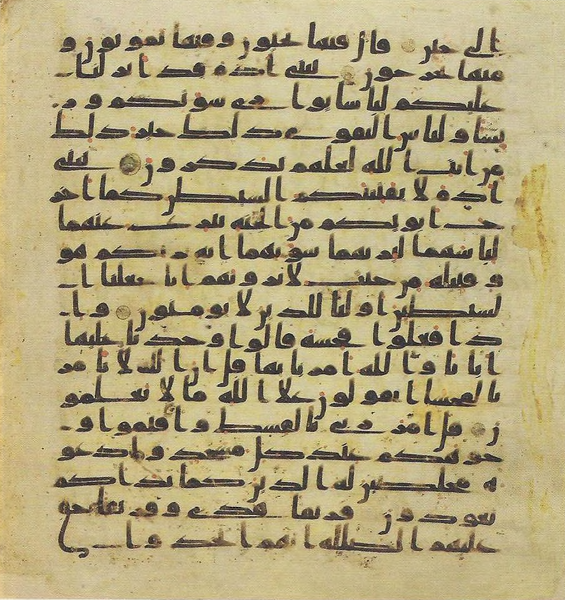 الى حين قال فيها تحيون وفيها تموتون و
منها تخرجون يبني ادم قد انزلنا
عليكم لباسا يواري سوتكم ور
يشا ولباس التقوى ذلك خير ذلك
من ايت الله لعلهم يذكرون يبني
ادم لا يفتننكم الشيطن كما اخر
ج ابويكم من الجنة ينزع عنهما
لباسهما ليريهما سوتهما انه يريكم هو
وقبيله من حيث لا ترونهم انا جعلنا ا
لشيطين اوليا للذين لا يومنون وا
ذا فعلوا فحشة قالوا وجدنا عليها
ابانا والله امرنا بها قل ان الله لا يامر
بالفحشا اتقولون علا الله ما لا تعلمو
ن قل امر ربي بالقسط واقيموا و
جوهكم عند كل مسجد وادعو
ه مخلصين له الدين كما بداكم
تعودون فريقا هدى وفريقا حق
عليهم الضللة انهم اتخذوا